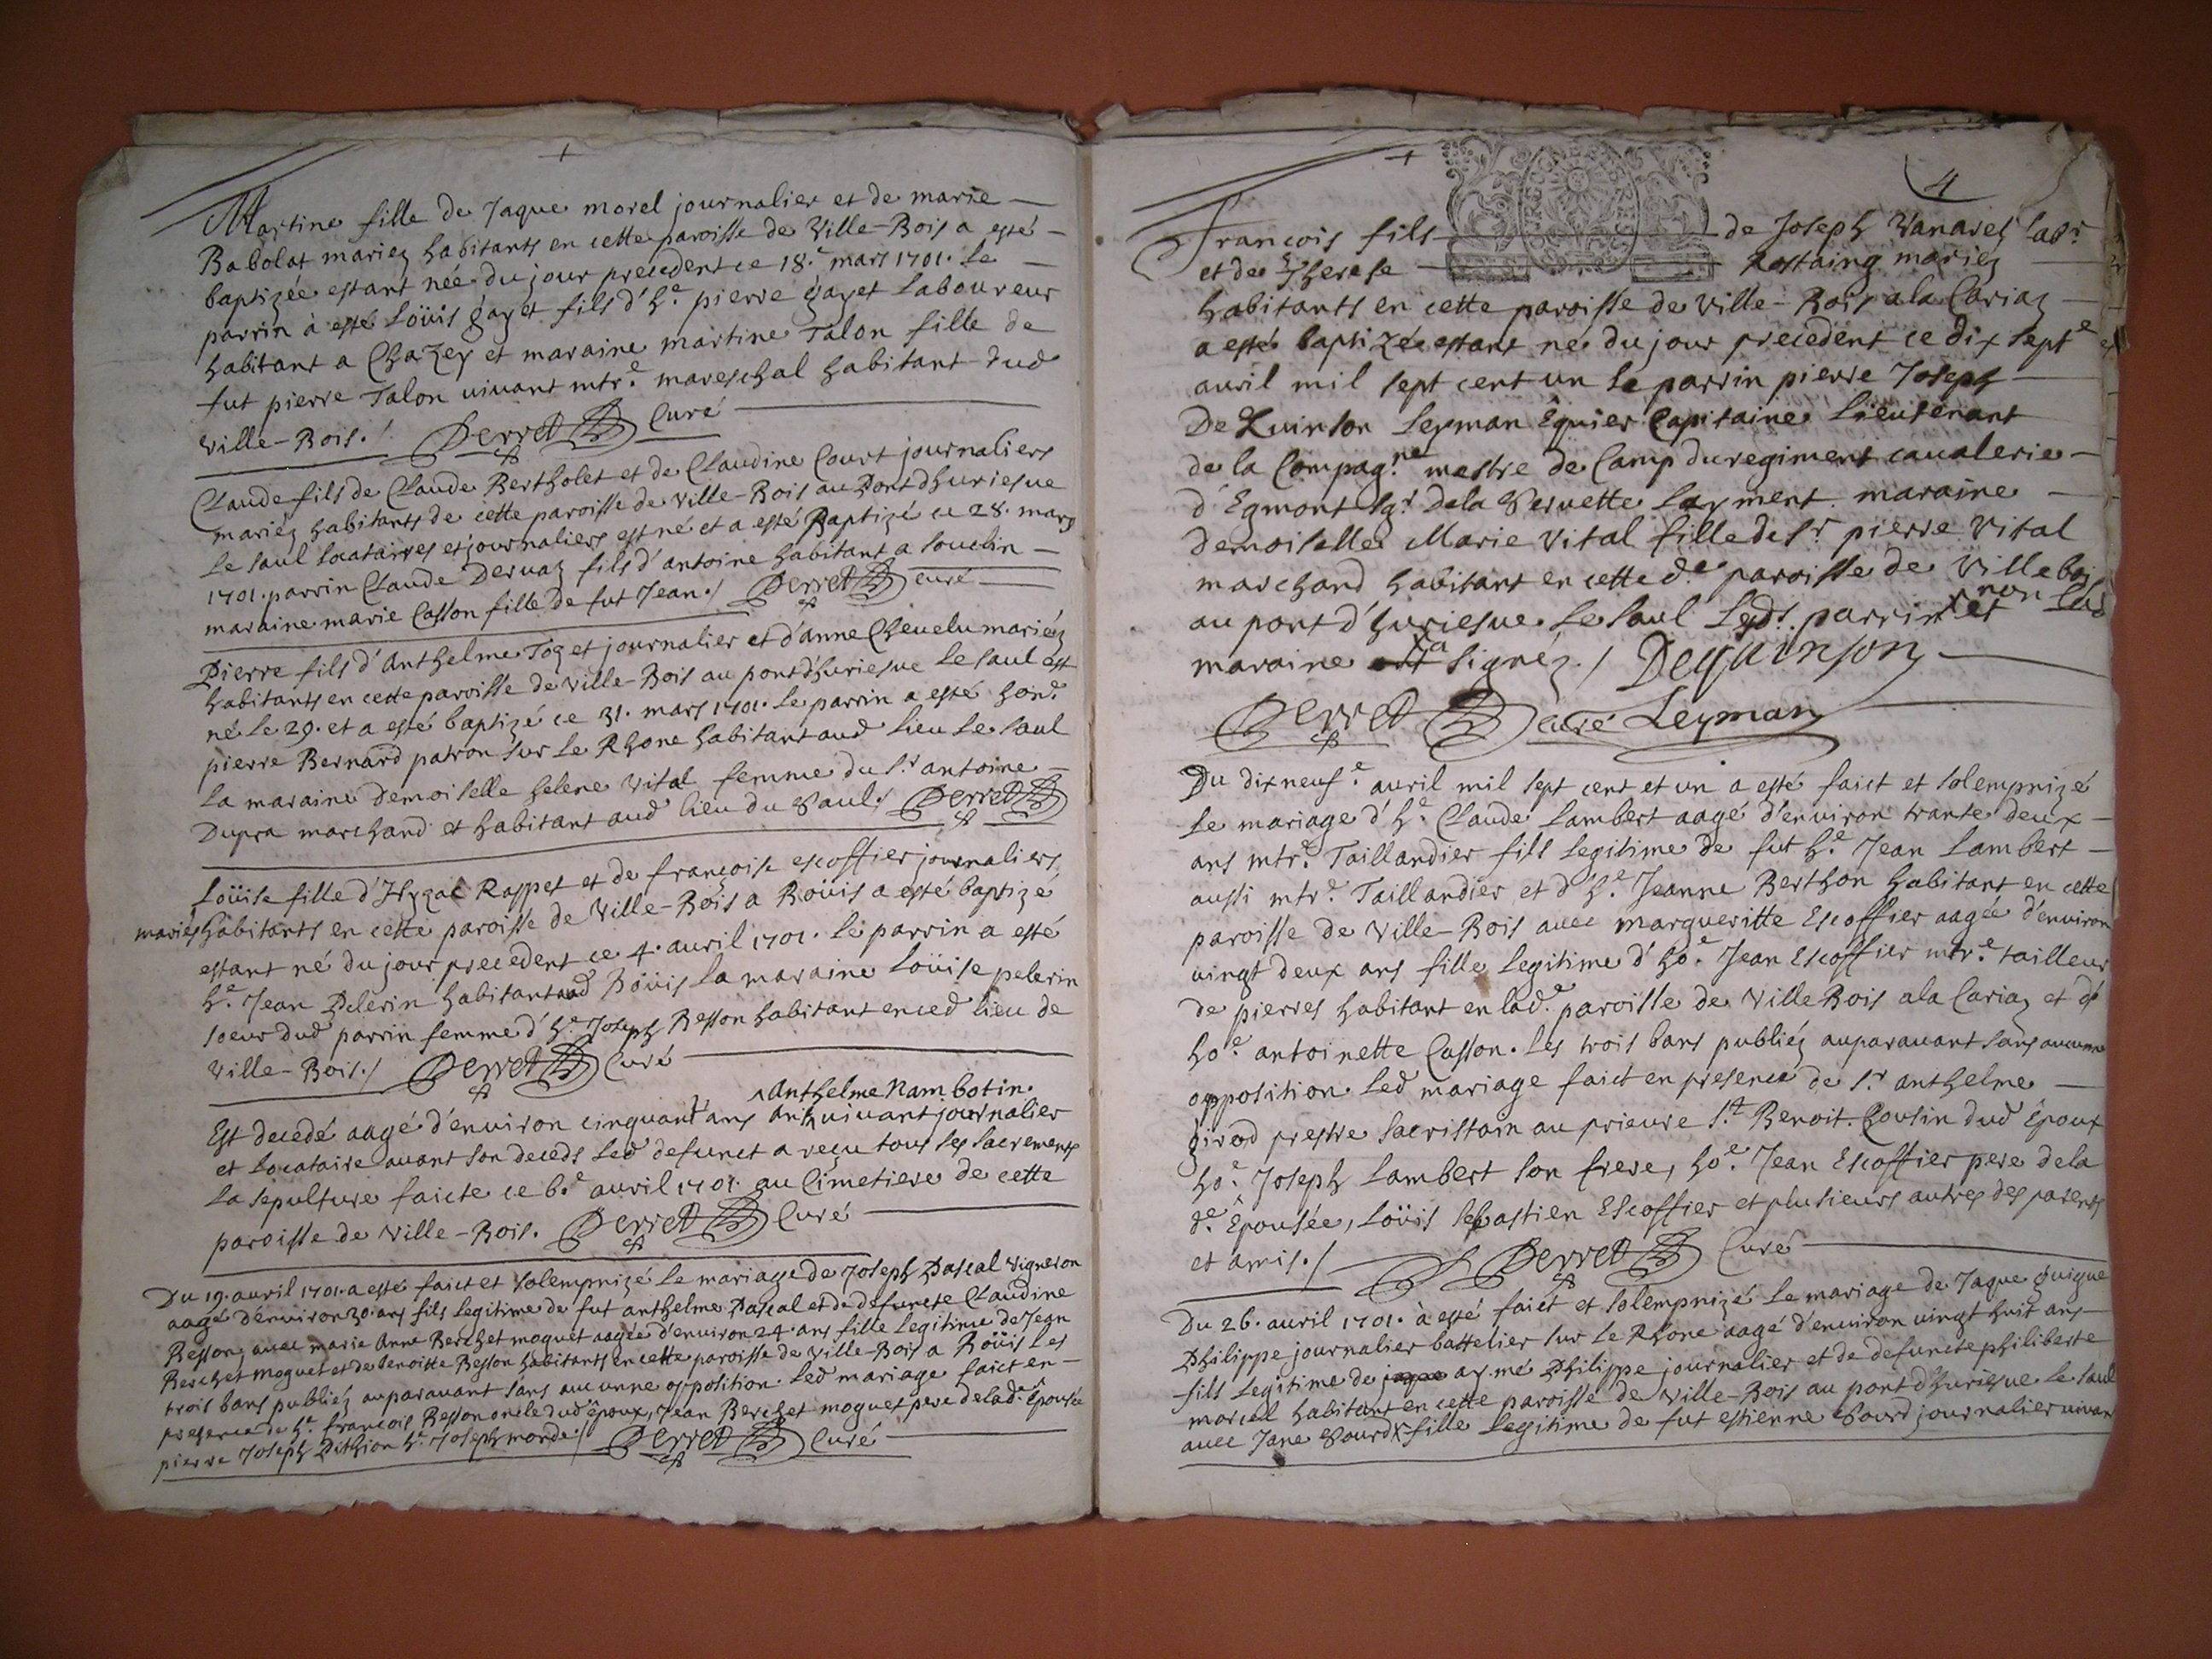 +
Martine fille de Jaque morel journalier et de marie
Babolat mariez habitants en cette paroisse de Ville-Bois a esté
baptizée estant née du jour precedent ce 18.e mars 1701. Le
parrin à esté Loüis gayet fils d'h.e pierre gayet Laboureur
habitant a Chazey et maraine martine Talon fille de
fut pierre Talon vivant mtr.e mareschal habitant dud
Ville-Bois./ Perret Curé
Claude fils de Claude Bertholet et de Claudine Court journaliers
mariéz habitants de cette paroisse de Ville-Bois au Pont d'huriesve
Le Saul Locataires et journaliers est né et a esté Baptizé ce 28. mars
1701. parrin Claude Dervaz fils d'antoine habitant a Souclin
maraine marie Casson fille de fut Jean./ Perret curé
Pierre fils d'Anthelme Toget journalier et d'anne Chevelu mariéz
habitants en cette paroisse de Ville-Bois au pont d'huriesve Le Saul est
né Le 29. et a esté baptizé ce 31. mars 1701. Le parrin a esté hon.e
pierre Bernard patron sur Le Rhone habitant aud Lieu Le Saul
La maraine demoiselle helene Vital femme du S.r antoine
Dupra marchand et habitant aud lieu du Saul./ Perret
Loüise fille d'Hyzac Rappet et de françoise escoffier journaliers
mariés habitants en cette paroisse de Ville-Bois a Boüis a esté baptizé
estant né du jour precedent ce 4. avril 1701. Le parrin a esté
h.e Jean Pelerin habitant aud Boüis La maraine Loüise pelerin
soeur dud parrin femme d'h.e Joseph Besson habitant en ced lieu de
Ville-Bois./ Perret Curé
^Anthelme Nambotin.
Est decedé aagé d'environ cinquant ans vivant journalier
et Locataire avant son deceds Led defunct a reçu tous ses sacrements
La sepulture faicte ce 6.e avril 1701. au Cimetiere de cette
paroisse de Ville-Bois. Perret Curé
Du 19. avril 1701. a esté faict et solempnizé Le mariage de Joseph Pascal Vigneron
aagé d'environ 30. ans fils Legitime de fut anthelme Pascal et de defuncte Claudine
Besson, avec marie Anne Berchet moguet aagée d'environ 24. ans fille Legitime de Jean
Berchet moguet et de benoitte Besson habitants en cette paroisse de Ville-Bois a Boüis Les
trois bans publiéz auparavant sans aucunne opposition. Led mariage faict en
presence de h.e françois Besson oncle dud époux, Jean Berchet moguet pere de lad.e Épousée
pierre Joseph Pithion h.e Joseph monde./ Perret Curé
+
4
François fils de Joseph Vanarel Labr
et de Therese Rostaing mariez
habitants en cette paroisse de Ville-Bois a la Cariaz
a esté baptizée estant né du jour precedent ce dix sept.e
avril mil sept cent un Le parrin pierre Joseph
De Quinson Leyman Équier Capitaine Lieutenant
de la Compag.ne mestre de Camp du regiment cavalerie
d'Egmont Sg.r De la Servette Leyment maraine
demoiselle Marie Vital fille de S.r pierre Vital
marchand habitant en cette d.e paroisse de Villebois
au pont d'huriesve Le Saul Lesd.s parrin et non Lad
maraine a signéz./ Dequinson
Perret curé Leyman
Du dix neuf.e avril mil sept cent et un a esté faict et solempnizé
Le mariage d'h.e Claude Lambert aagé d'environ trante deux
ans mtr.e Taillandier fils Legitime de fut h.e Jean Lambert
aussi mtr.e Taillandier et d'h.e Jeanne Berthon habitant en cette
paroisse de Ville-Bois avec margueritte Escoffier aagée d'environ
vingt deux ans fille Legitime d'ho.e Jean Escoffier mtr.e tailleur
de pierres habitant en lad.e paroisse de Ville Bois a la Cariaz et d'
ho.e antoinette Casson. Les trois bans publiéz auparavant sans aucunne
opposition Led mariage faict en presence de S.r anthelme
girod prestre sacristain au prieure S.t Benoit. Cousin dud Époux
ho.e Joseph Lambert son frere, ho.e Jean Escoffier pere de la
d.e Épousée, Loüis Sebastien Escoffier et plusieurs autres des parents
et amis./ Perret Curé
Du 26. avril 1701. à esté faict et solempnizé Le mariage de Jaque guigue
Philippe journalier battelier sur Le Rhone aagé d'environ vingt huit ans
fils Legitime de aymé Philippe journalier et de defuncte philiberte
marcel habitant en cette paroisse de Ville-Bois au pont d'huriesve Le Saul
avec Jane Sourd fille Legitime de fut estienne Sourd journalier vivan